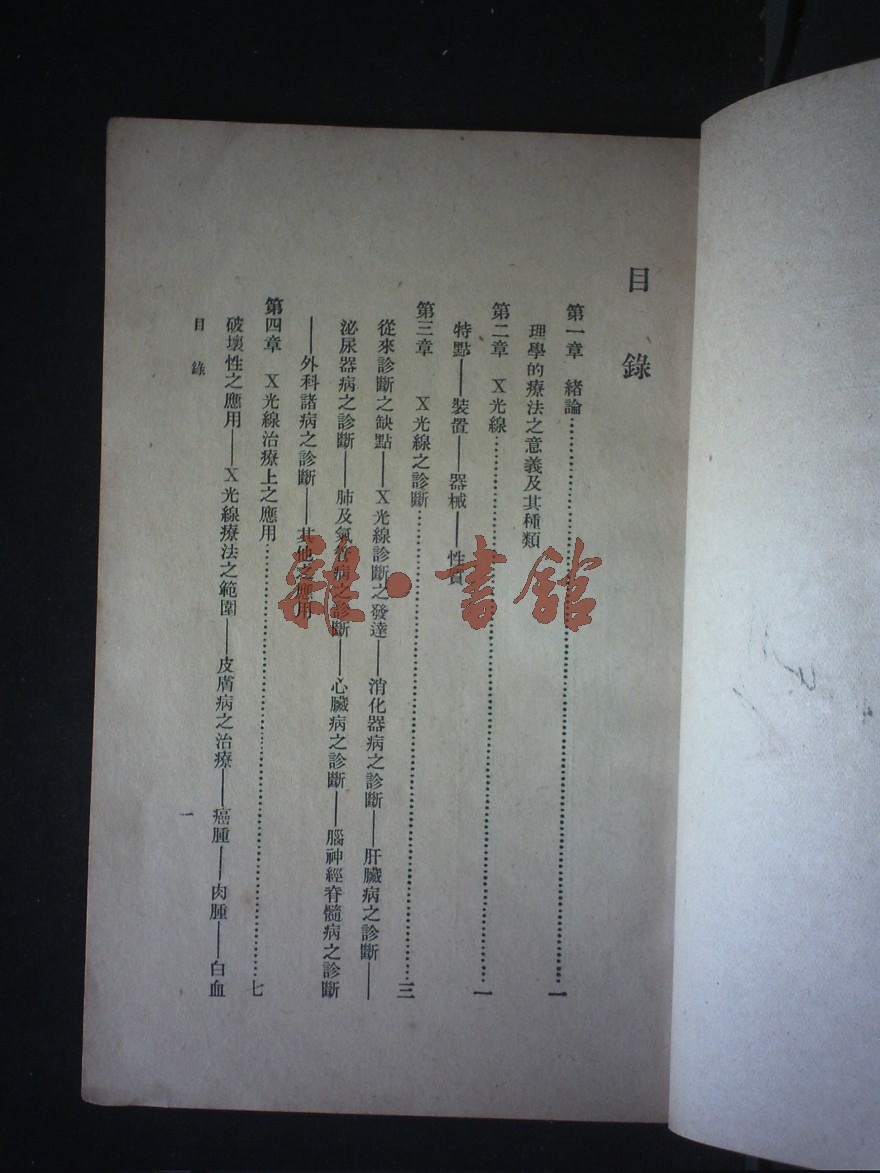 目錄
第一章 緒論……一
理學的療法之意義及其種類
第二章 X光線……一
特點——裝置——器械——性質
第三章 X光線之診斷……三
從來診斷之缺點——X光線診斷之發達——消化器病之診斷——肝臟病之診斷——
泌尿器病之診斷——肺及氣管病之診斷——心臟病之診斷——腦神經脊髓病之診斷
——外科諸病之診斷——其他之應用
第四章 X光線治療上之應用……七
破壞性之應用——X光線療法之範圍——皮膚病之治療——癌腫——肉腫——白血
目錄
一
雜·書館